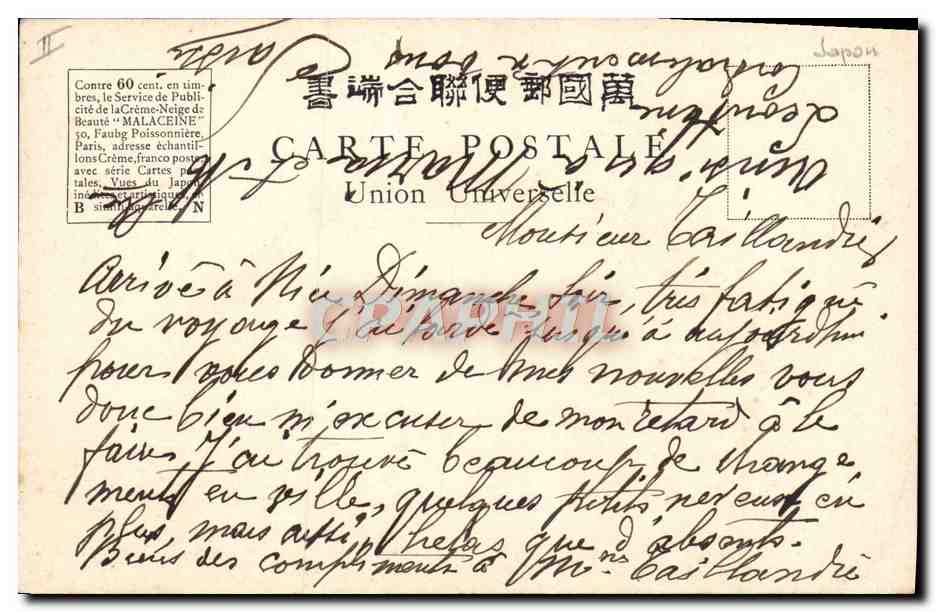 II
Japon
Contre 60 cent. en tim-
bres, le Service de Publi-
cité de la Crème-Neige de
Beauté "MALACEINE"
50, Faubg Poissonnière,
Paris, adresse échantil-
lons Crème, franco poste,
avec série Cartes pos-
tales, Vues du Japon
inédites et artistiques,
simili aquarelle.
B N
書端合聯便郵國萬
CARTE POSTALE
Union Universelle
CPAPHIL
Monsieur Taillandié
Arrivé à Nice Dimanche soir, très fatigué
du voyage j'ai tardé jusqu'à aujourd'hui
pour vous donner de mes nouvelles vous
donc bien m'excuser de mon retard à le
faire. J'ai trouvé beaucoup de change
ments en ville, quelques petits neveux en
plus, mais aussi, helas que d'absents.
Biens des compliments à Mrs Taillandié
ainsi qu'à Maria et